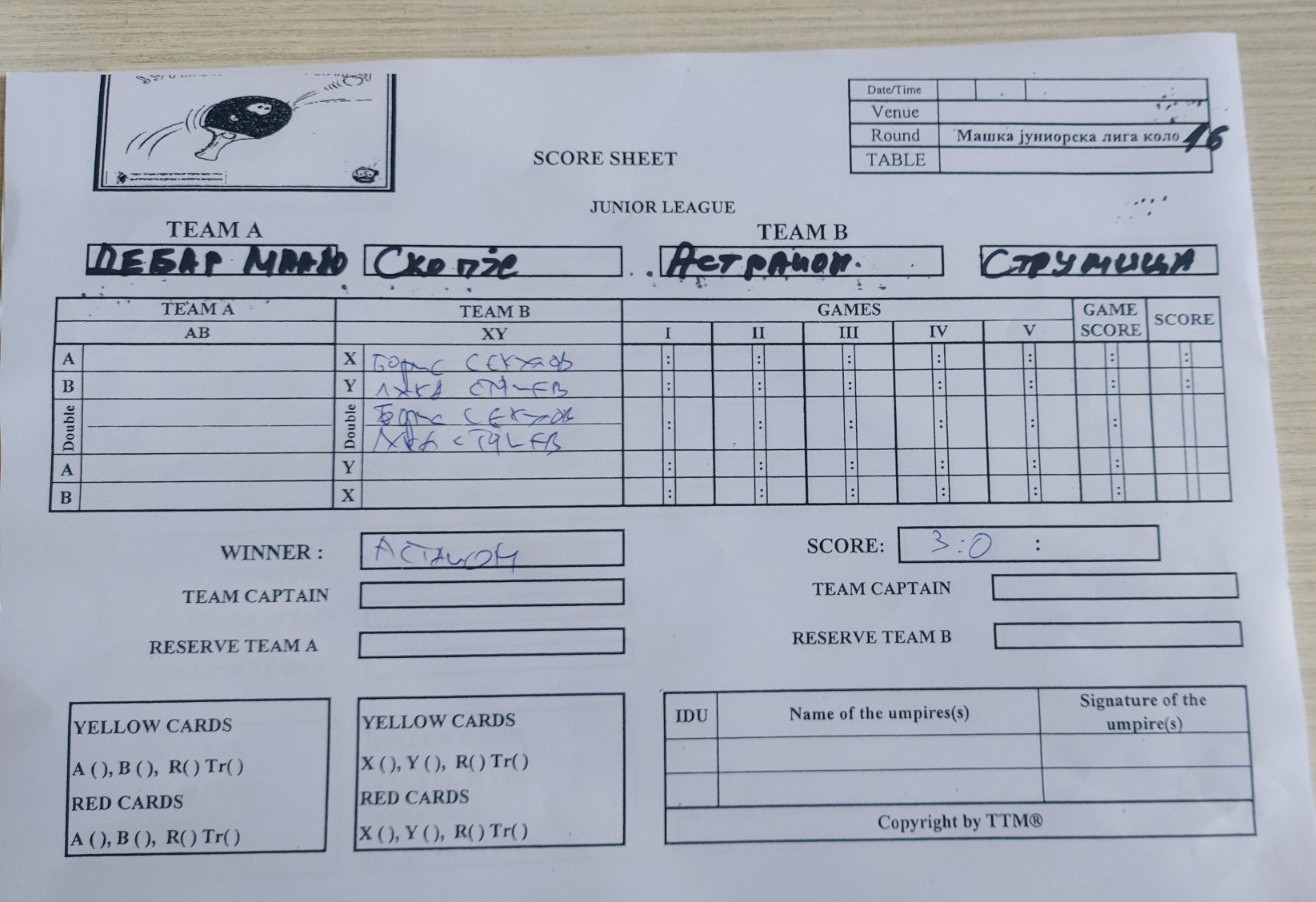 Date/Time
Venue
Round Машка јуниорска лига коло 16
TABLE
SCORE SHEET
JUNIOR LEAGUE
TEAM A TEAM B
ДЕБАР МААЛО Скопје Астраион. СТРУМИЦА
TEAM A TEAM B GAMES GAME SCORE SCORE
AB XY I II III IV V
A X : : : : : : :
B Y : : : : : : :
Double Double : : : : : :
A Y : : : : : :
B X : : : : : :
WINNER : SCORE: 3:0 :
TEAM CAPTAIN TEAM CAPTAIN
RESERVE TEAM A RESERVE TEAM B
YELLOW CARDS
A ( ), B ( ), R( ) Tr( )
RED CARDS
A ( ), B ( ), R( ) Tr( )
YELLOW CARDS
X ( ), Y ( ), R( ) Tr( )
RED CARDS
X ( ), Y ( ), R( ) Tr( )
IDU Name of the umpires(s) Signature of the umpire(s)
Copyright by TTM®